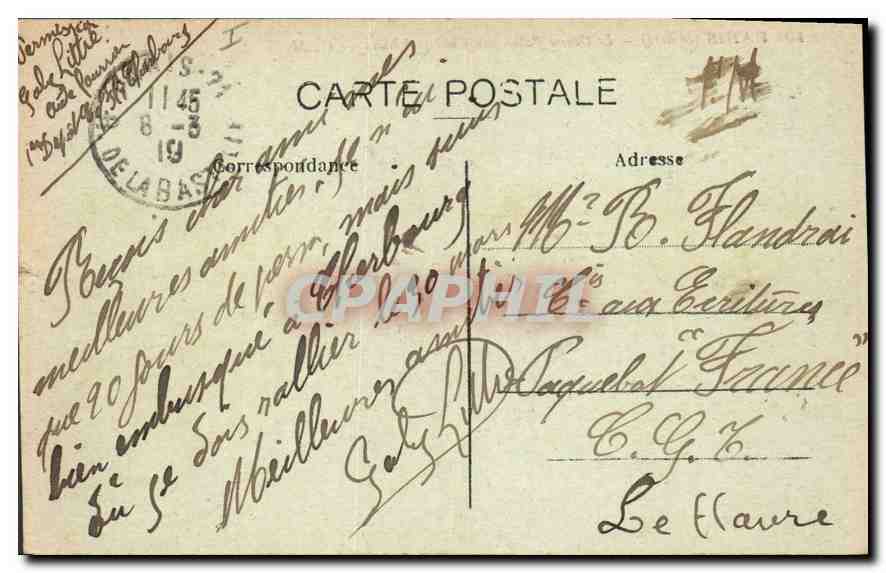 Permission
Gaby Littré
1er Dépôt Cherbourg
11 45
8 - 3
19
DE LA BASTILLE
CARTE POSTALE
F.M
Correspondance
Adresse
Reçois cher ami mes
meilleures amitiés. Je n'ai
que 20 jours de perm, mais suis
bien embusqué à Cherbourg
où je dois rallier le 30 mars
Meilleures amitiés
Gaby Littré
Mr R. Flandrai
Cis aux Ecritures
Paquebot "France"
C. G. T.
Le Havre
CPAPHIL